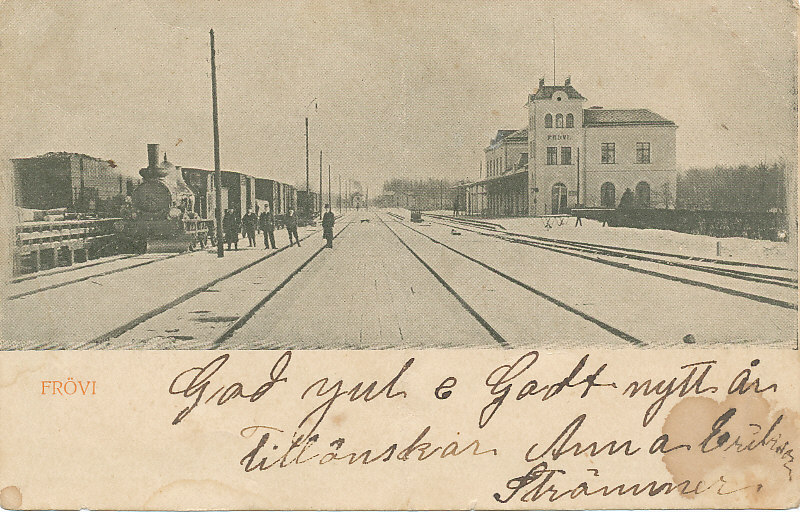 FRÖVI.
FRÖVI
God yul e Godt nytt år
Tillönskar Anna Eriksson
Strämner.